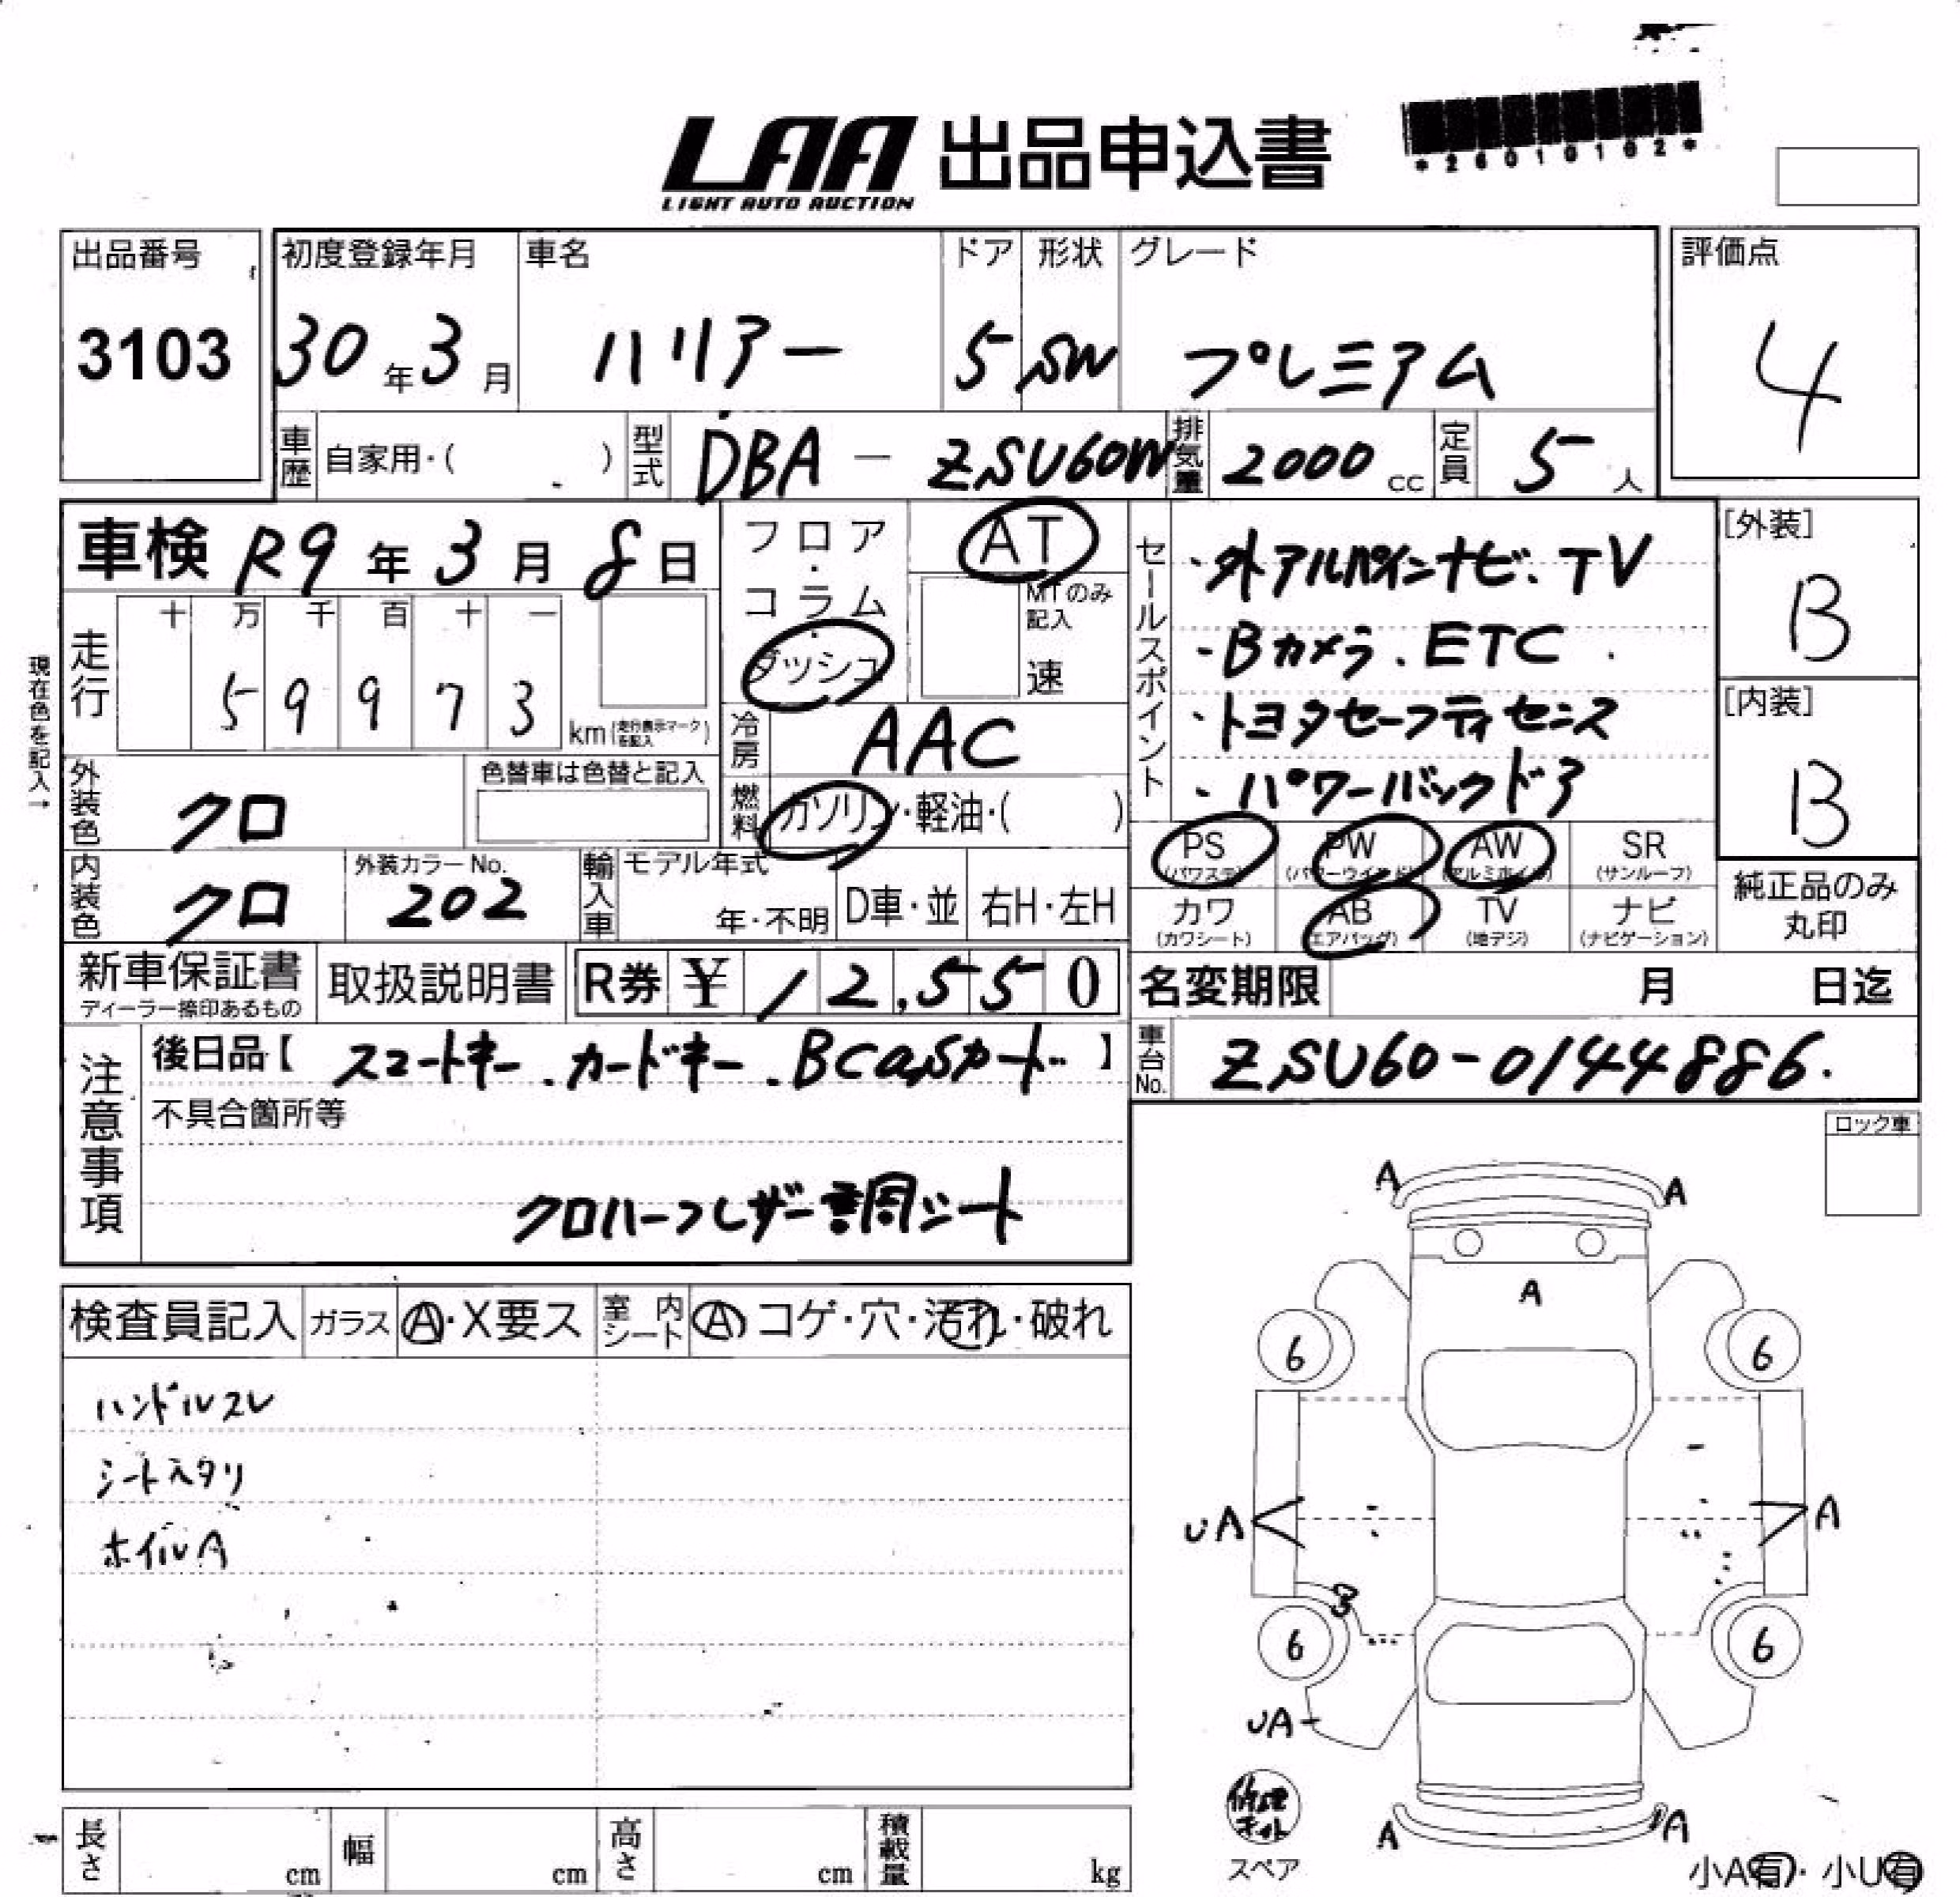 LAA 出品申込書
LIGHT AUTO AUCTION
*26010102*
出品番号
3103
初度登録年月
30年3月
車名
ハリアー
ドア
5
形状
SW
グレード
プレミアム
評価点
4
車歴 自家用・( )
型式 DBA - ZSU60W
排気量 2000 cc
定員 5 人
車検 R9年3月8日
現在色を記入→
走行
十 万 千 百 十 一
5 9 9 7 3
km(走行表示マークを記入)
フロア・コラム・ダッシュ
AT
MTのみ記入
速
冷房 AAC
燃料 ガソリン・軽油・( )
セールスポイント
・外アルパインナビ、TV
・Bカメラ、ETC
・トヨタセーフティセンス
・パワーバックドア
[外装]
B
[内装]
B
外装色 クロ
色替車は色替と記入
内装色 クロ
外装カラーNo.
202
輸入車
モデル年式
年・不明
D車・並
右H・左H
PS
(パワステ)
PW
(パワーウインド)
AW
(アルミホイル)
SR
(サンルーフ)
カワ
(カワシート)
AB
(エアバッグ)
TV
(地デジ)
ナビ
(ナビゲーション)
純正品のみ
丸印
新車保証書
ディーラー捺印あるもの
取扱説明書
R券 ¥ 12,550
名変期限 月 日迄
注意事項
後日品【スマートキー、カードキー、BCasカード】
車台No. ZSU60-0144886.
不具合箇所等
クロハーフレザー調シート
ロック車
検査員記入
ガラス A・X要ス
室内シート A コゲ・穴・汚れ・破れ
ハンドルスレ
シートヘタリ
ホイルA
A A
A
6 6
UA A
3
6 6
UA
修理キット
スペア
A A
長さ cm
幅 cm
高さ cm
積載量 kg
小A有・小U有